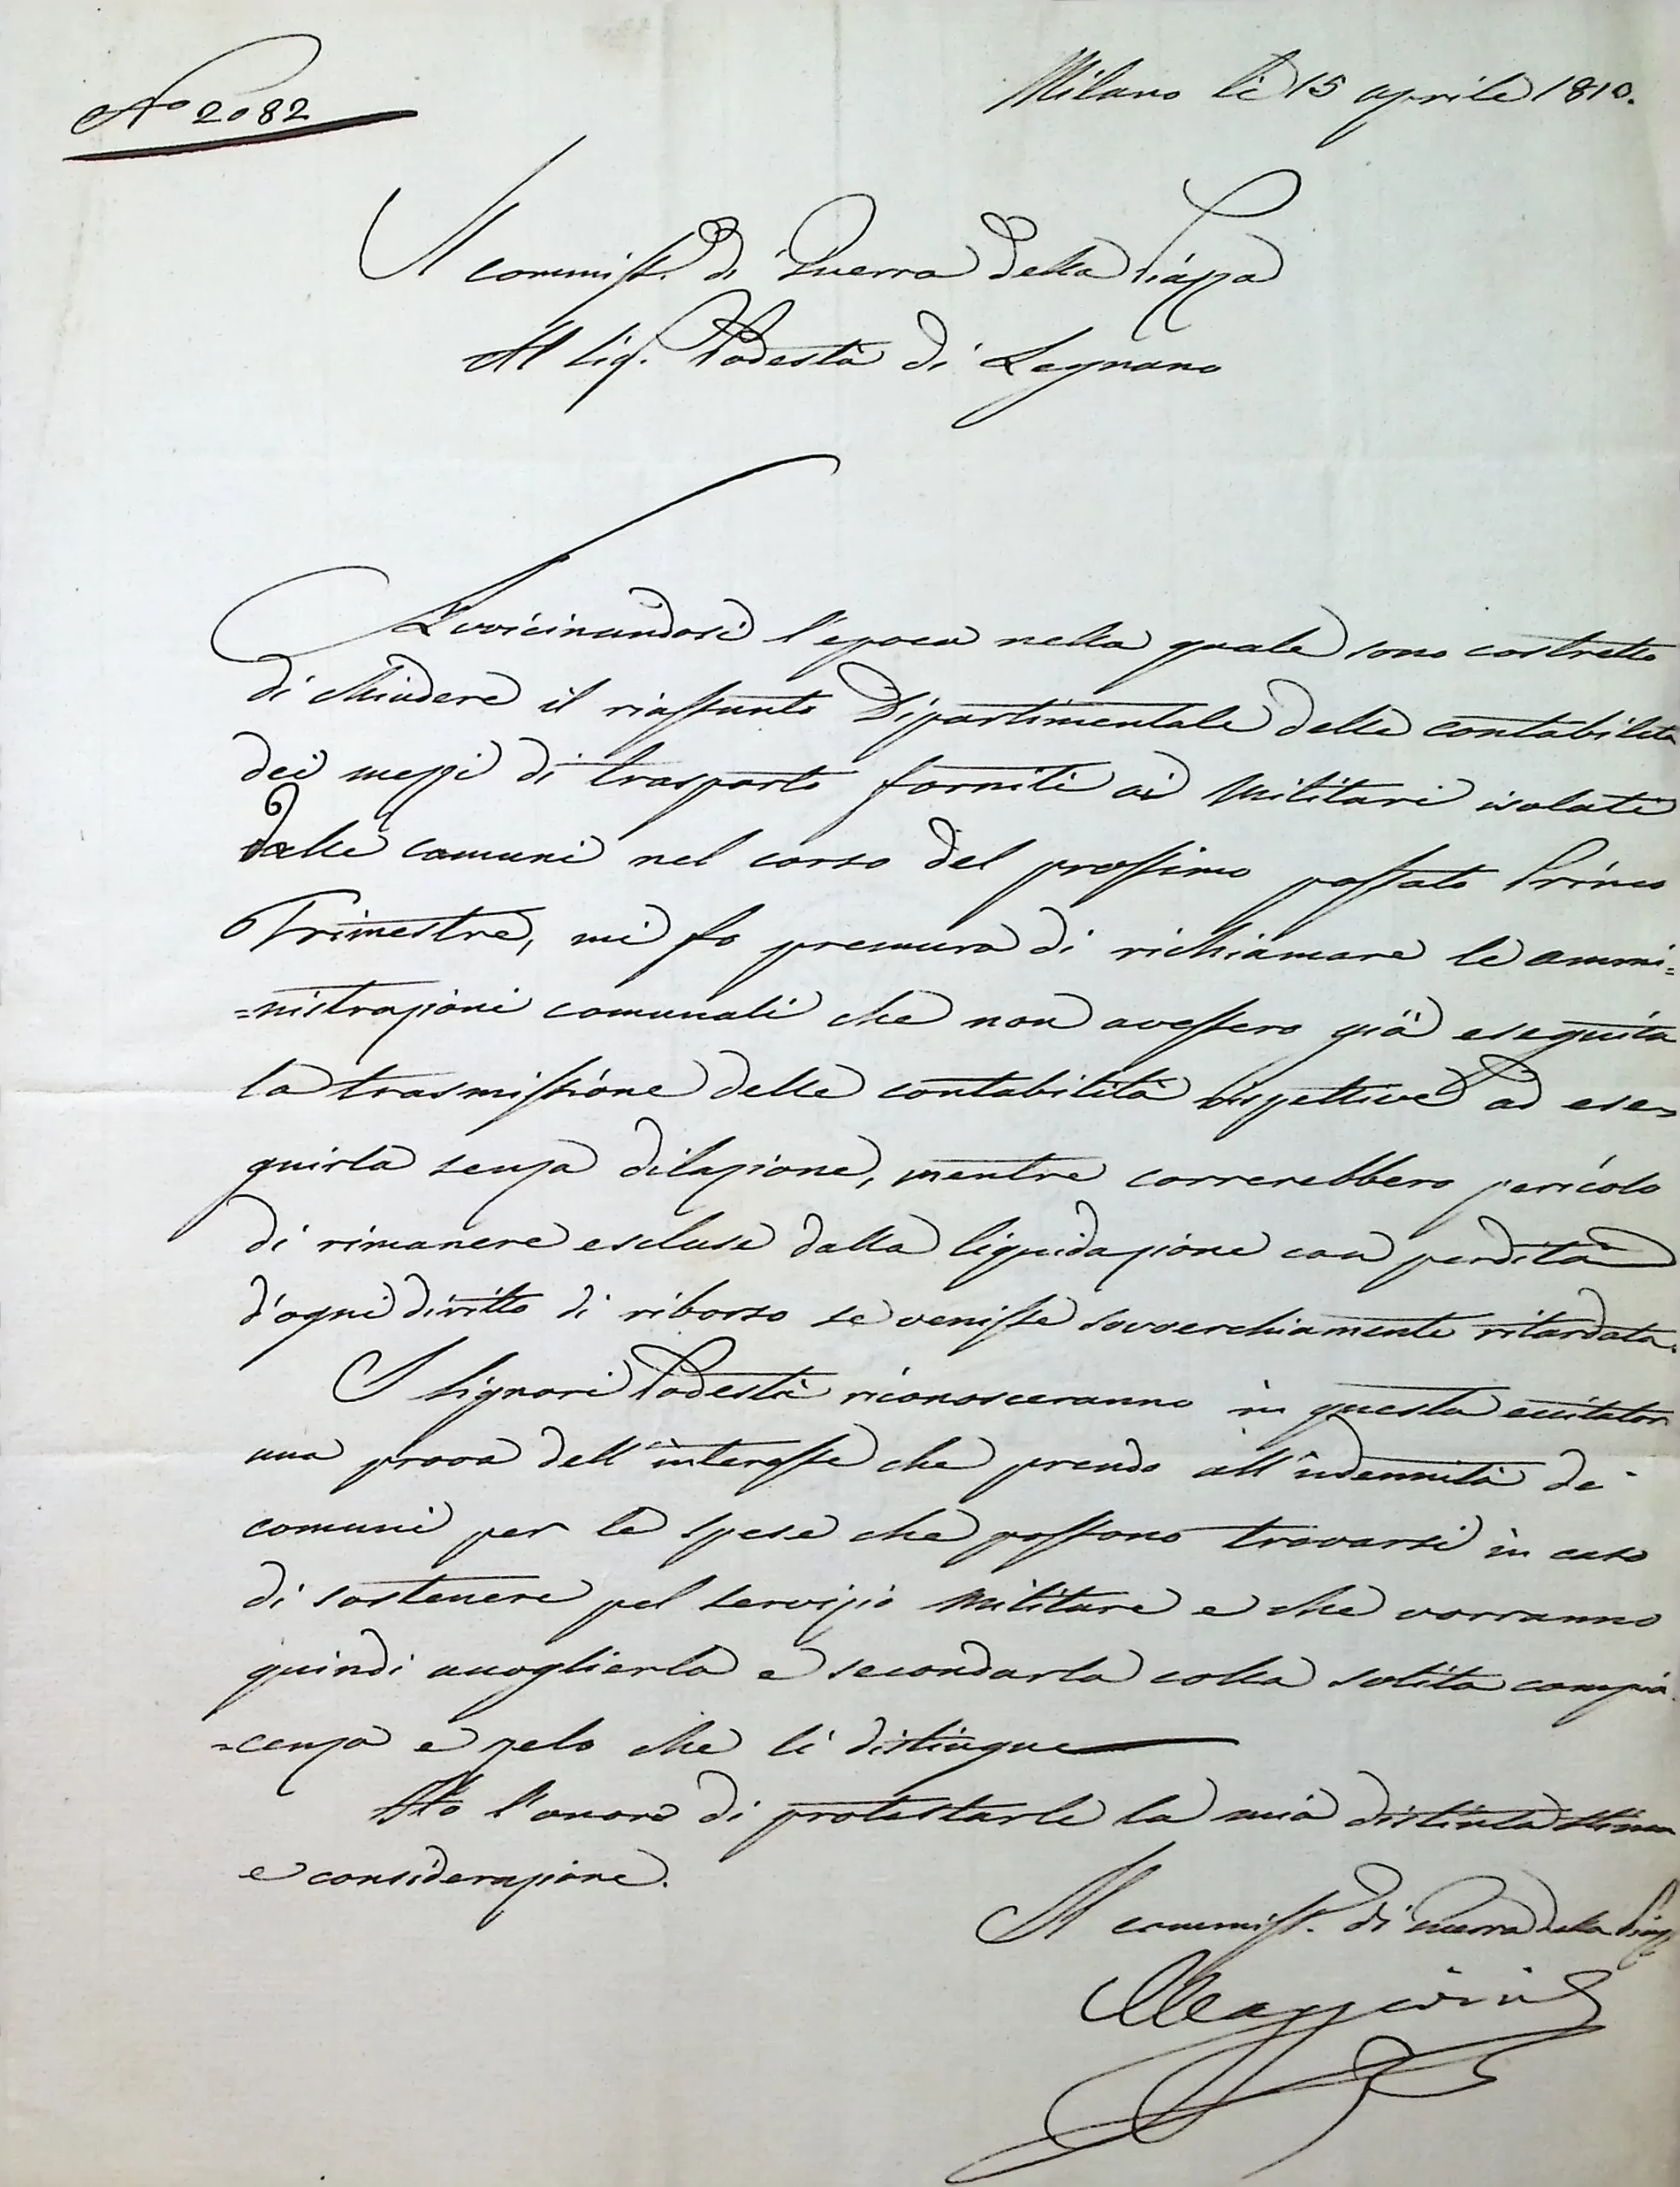 N.o 2082
Milano li 15 aprile 1810.
Il commiss. di Guerra della Piazza
Al Sig. Podestà di Legnano
Avvicinandosi l'epoca nella quale sono costretto
di chiudere il riassunto Dipartimentale delle contabilità
dei mezzi di trasporto forniti ai Militari isolati
dalle comuni nel corso del prossimo passato Primo
Trimestre, mi fo premura di richiamare le ammi=
=nistrazioni comunali che non avessero già eseguita
la trasmissione delle contabilità rispettive ad ese=
guirla senza dilazione, mentre correrebbero pericolo
di rimanere escluse dalla liquidazione con perdita
d'ogni diritto di riborso se venisse soverchiamente ritardata.
I Signori Podestà riconosceranno in questa
una prova dell'interesse che prendo all'indennità de'
comuni per le spese che possono trovarsi in caso
di sostenere pel servizio Militare e che vorranno
quindi accoglierla e secondarla colla solita compia
=cenza e zelo che li distingue
Ho l'onore di protestarle la mia distinta stima
e considerazione.
Il commiss. di Guerra della Piazza